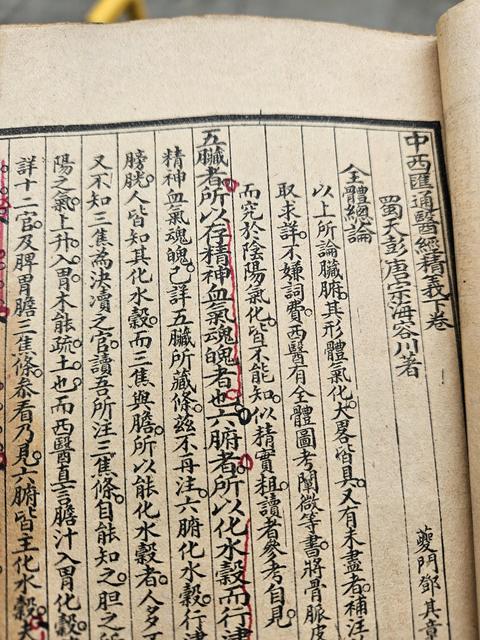 中西匯通醫經精義下卷
蜀天彭唐宗海容川著
夔門鄧其章
全體總論
以上所論臟腑其形體氣化大畧皆具又有未盡者補注
取求詳不嫌詞費西醫有全體圖考闡微等書將骨脈皮
而究於陰陽氣化皆不能知似精實粗讀者參考自見
五臟者所以存精神血氣魂魄者也六腑者所以化水穀而行津
精神血氣魂魄已詳五臟所藏條茲不再注六腑化水穀行津
膀胱人皆知其化水穀而三焦與膽所以能化水穀者人多不
又不知三焦為決瀆之官讀吾所注三焦條自能知之膽之所
陽之氣上升入胃木能疏土也而西醫直言膽汁入胃化穀
詳十二官及脾胃膽三焦條參看乃見六腑皆主化水穀